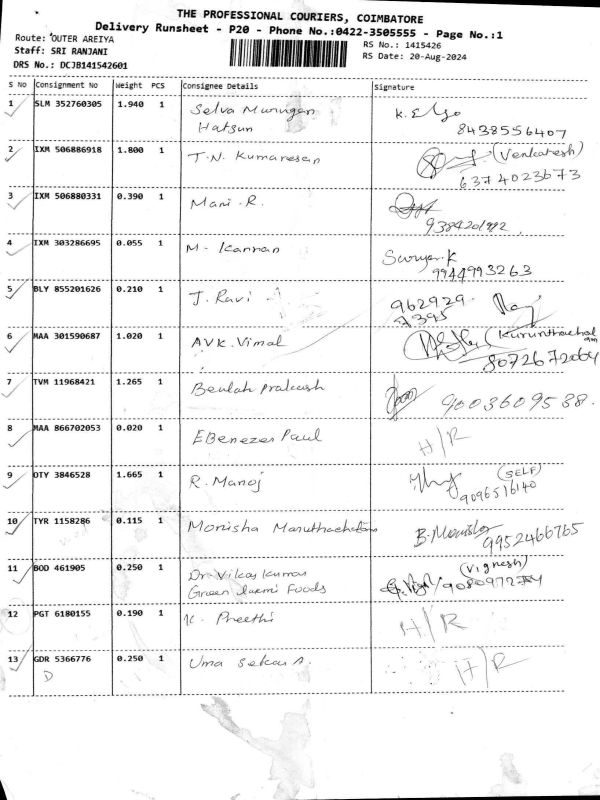 THE PROFESSIONAL COURIERS, COIMBATORE
Delivery Runsheet - P20 - Phone No.:0422-3505555 - Page No.:1
Route: OUTER AREIYA
RS No.: 1415426
Staff: SRI RANJANI
RS Date: 20-Aug-2024
DRS No.: DCJB141542601
S No Consignment No Weight PCS Consignee Details Signature
1 SLM 352760305 1.940 1 Selva Murugan
Hatsun
8438556407
2 IXM 506886918 1.800 1 T.N. Kumaresan (Venkatesh)
6374023673
3 IXM 506880331 0.390 1 Mani.R.
4 IXM 303286695 0.055 1 M. Kannan Surya.K
9944993263
5 BLY 855201626 0.210 1 J. Ravi 962929
7395
6 MAA 301590687 1.020 1 AVK. Vimal
8072672064
7 TVM 11968421 1.265 1 Beulah Prakash 9003609538.
8 MAA 866702053 0.020 1 EBenezer Paul H/R
9 OTY 3846528 1.665 1 R. Manoj (SELF)
9096516140
10 TYR 1158286 0.115 1 Monisha B. Monisha
9952466765
11 BOD 461905 0.250 1 Dr Vikas Kumar (Vignesh)
Green Foods
12 PGT 6180155 0.190 1 K. Preethi H/R
13 GDR 5366776 0.250 1 Uma Sekar H/R
D